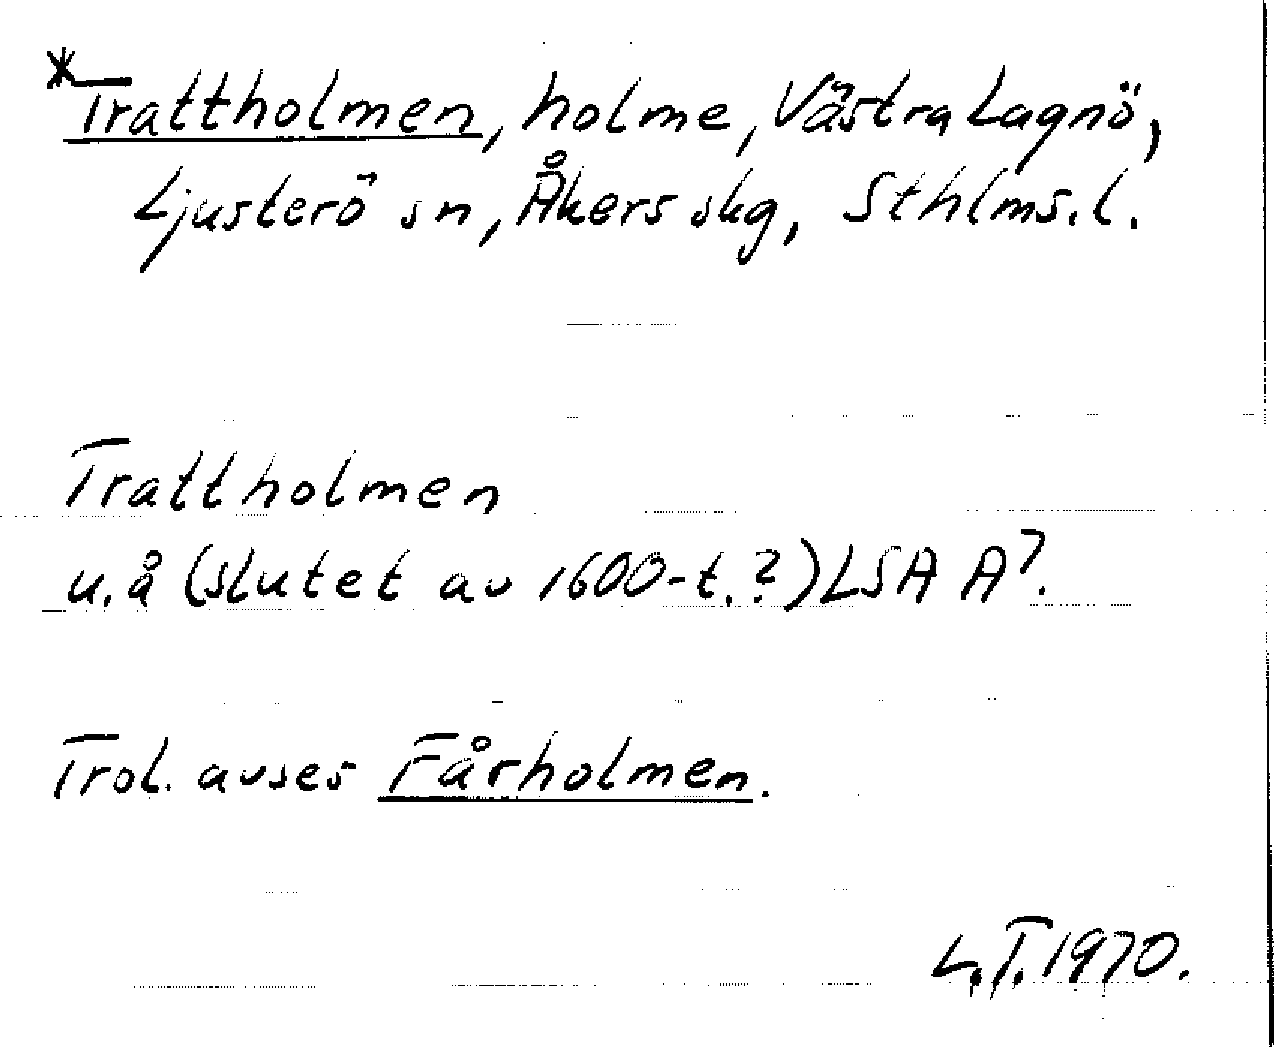 *Trattholmen, holme, Västra Lagnö,
Ljusterö sn, Åkers skg, Sthlms. l.
Trattholmen
u.å (slutet av 1600-t.?) LSA A7.
Trol. avses Fårholmen.
L.T. 1970.